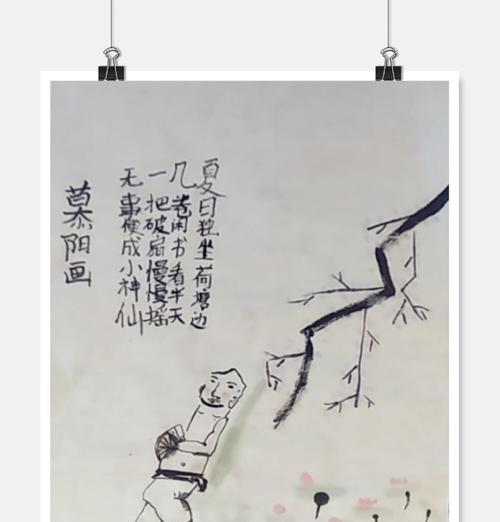 夏日独坐荷塘边
几卷闲书看半天
一把破扇慢慢摇
无事便成小神仙
慕阳画